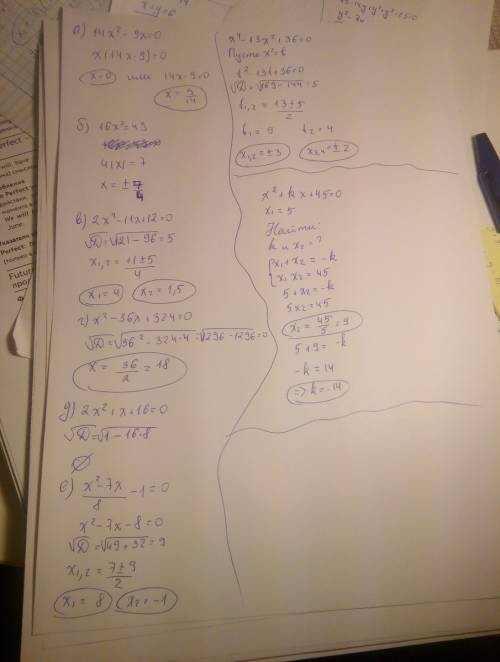 а) 14x² - 9x = 0
x(14x - 9) = 0
x = 0 или 14x - 9 = 0
x = 9/14
б) 16x² = 49
4|x| = 7
x = ± 7/4
в) 2x² - 11x + 12 = 0
√D = √121 - 96 = 5
x₁,₂ = +11 ± 5 / 4
x₁ = 4 x₂ = 1,5
г) x² - 36x + 324 = 0
√D = √36² - 324·4 = √1296 - 1296 = 0
x = 36/2 = 18
д) 2x² + x + 16 = 0
√D = √1 - 16·8
∅
е) x² - 7x / 8 - 1 = 0
x² - 7x - 8 = 0
√D = √49 + 32 = 9
x₁,₂ = 7 ± 9 / 2
x₁ = 8 x₂ = -1
x⁴ - 13x² + 36 = 0
Пусть x² = t
t² - 13t + 36 = 0
√D = √169 - 144 = 5
t₁,₂ = 13 ± 5 / 2
t₁ = 9 t₂ = 4
x₁,₂ = ± 3 x₃,₄ = ± 2
x² + kx + 45 = 0
x₁ = 5
Найти:
k и x₂ = ?
{ x₁ + x₂ = -k
x₁ x₂ = 45
5 + x₂ = -k
5x₂ = 45
x₂ = 45/5 = 9
5 + 9 = -k
-k = 14
=> k = -14